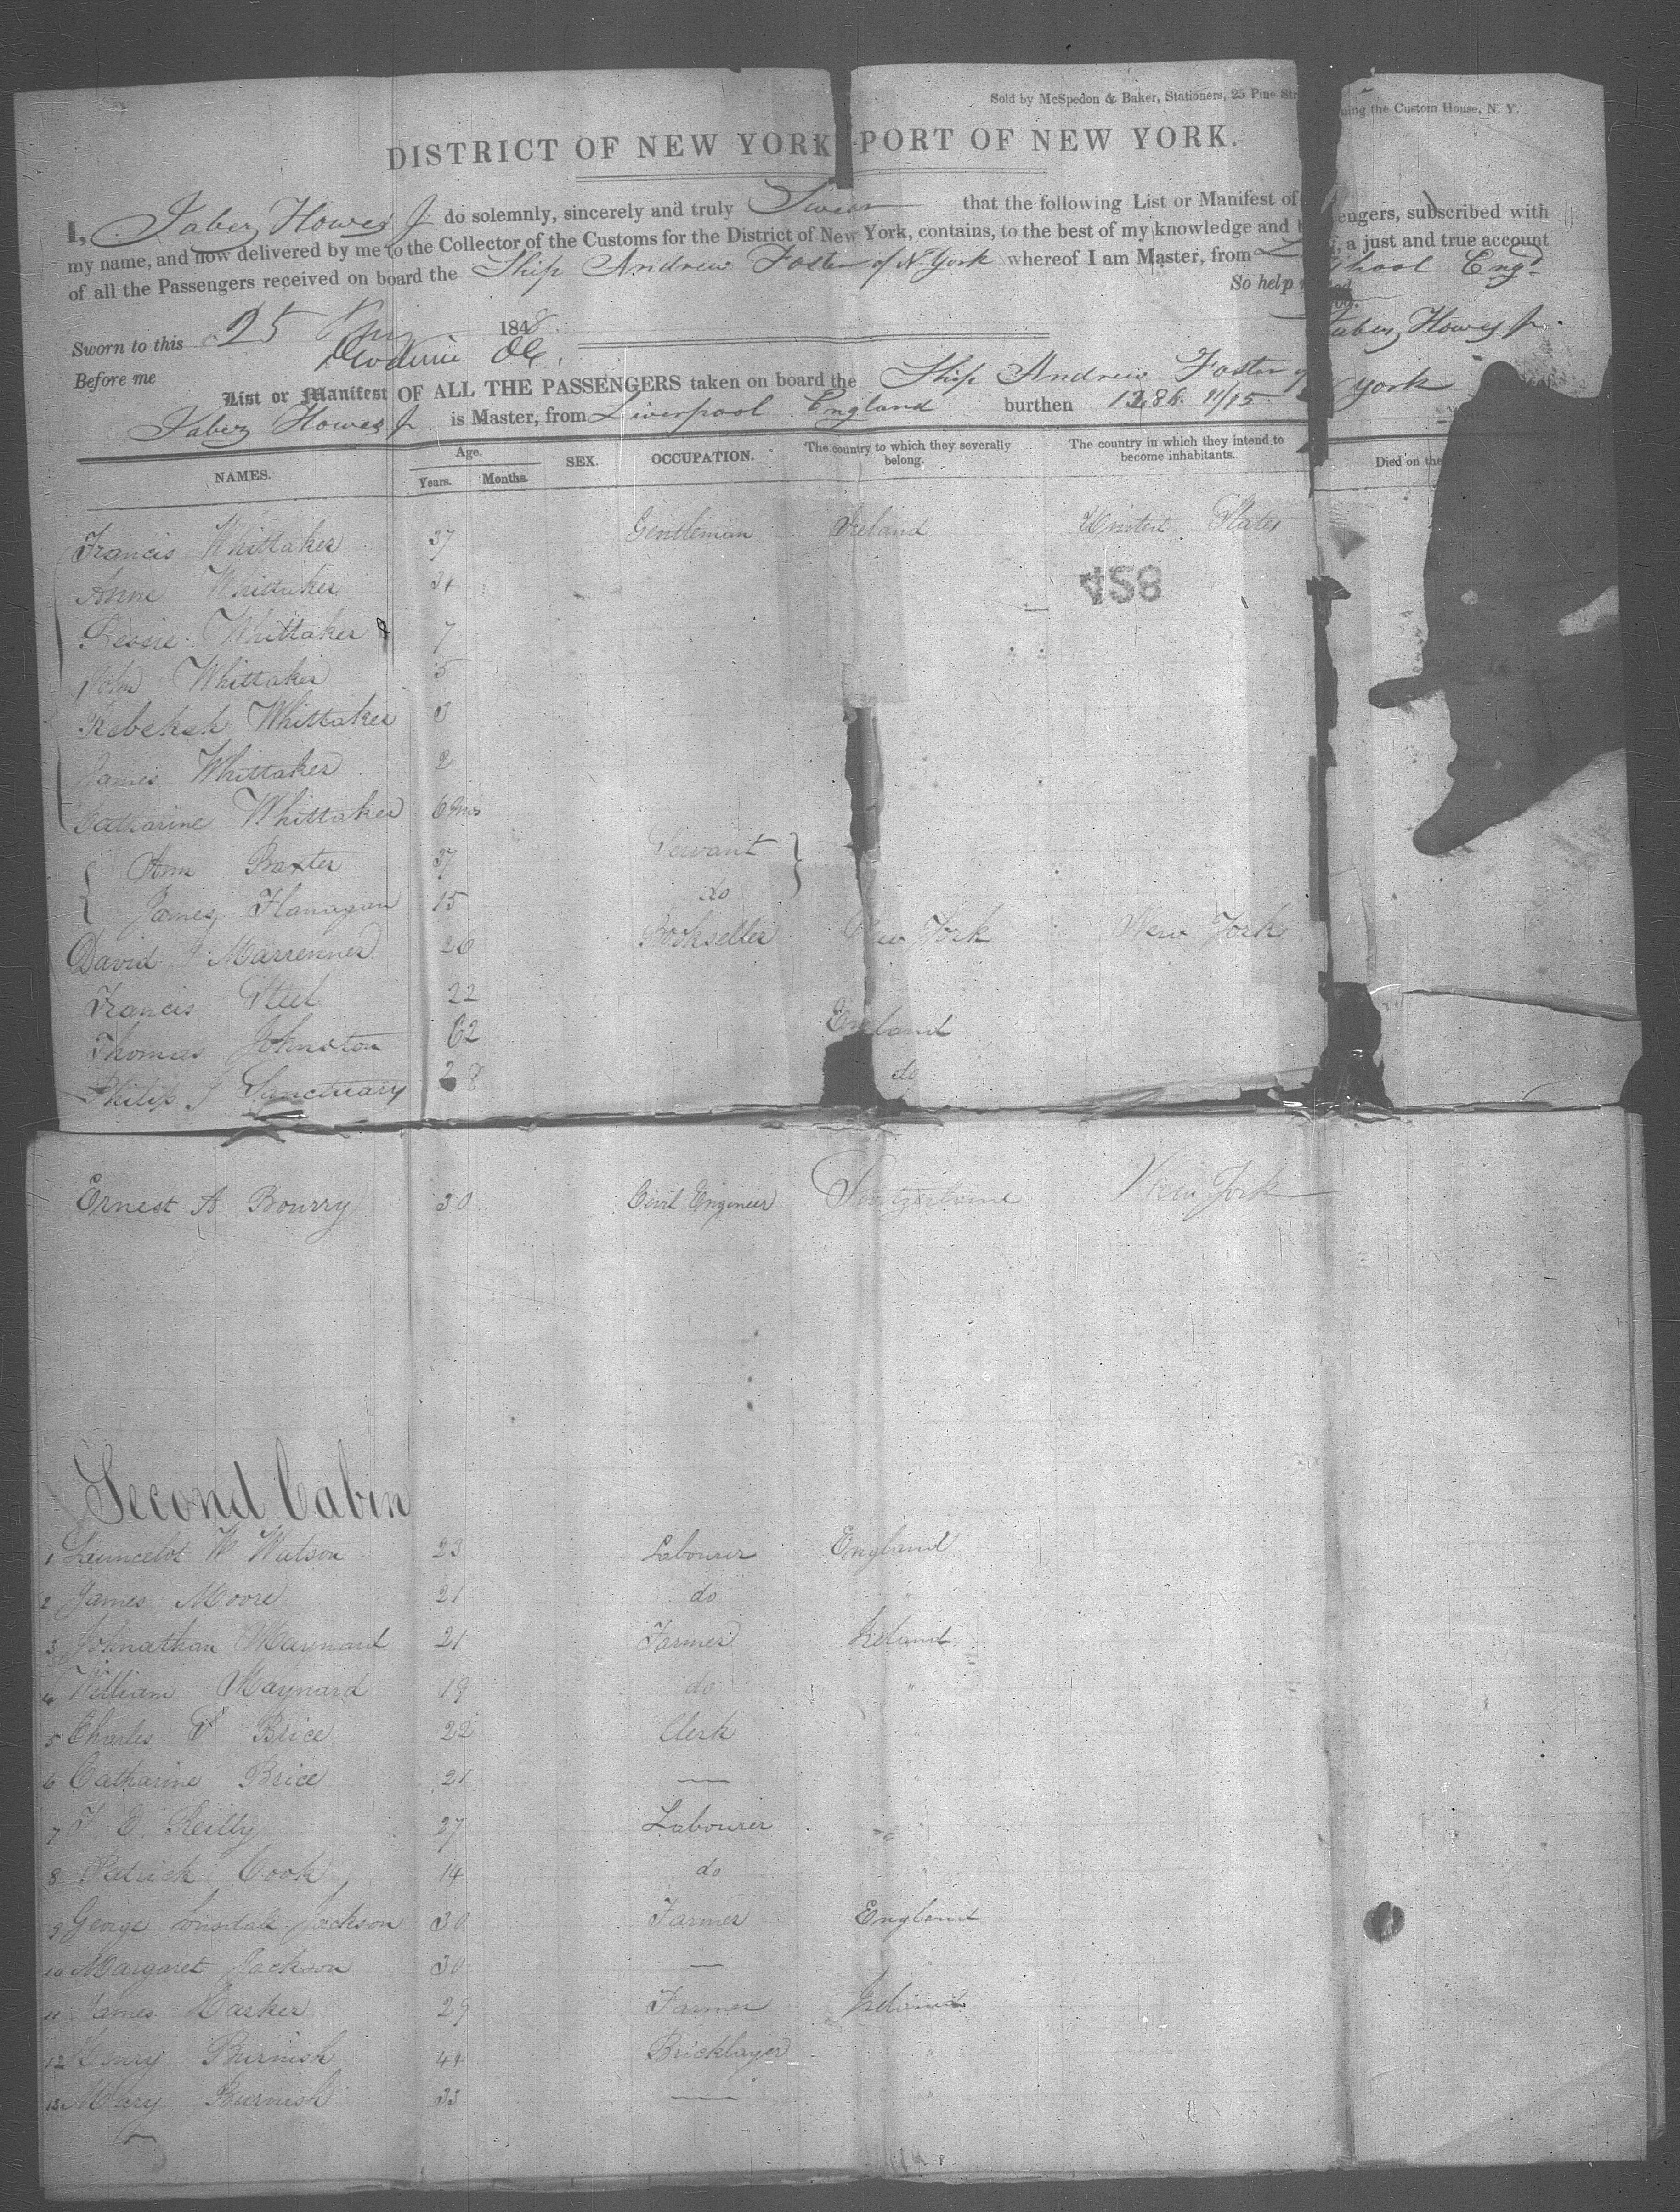 Sold by McSpedon & Baker, Stationers, 25 Pine Str ning the Custom House, N. Y.
DISTRICT OF NEW YORK PORT OF NEW YORK.
I, Jabez Howes Jr do solemnly, sincerely and truly Swear that the following List or Manifest of engers, subscribed with
my name, and now delivered by me to the Collector of the Customs for the District of New York, contains, to the best of my knowledge and b f, a just and true account
of all the Passengers received on board the Ship Andrew Foster of N York whereof I am Master, from L pool Engd
So help
Sworn to this 25 1848 Jabez Howes Jr
Before me
List or Manifest OF ALL THE PASSENGERS taken on board the Ship Andrew Foster of York
Jabez Howes Jr is Master, from Liverpool England burthen 1286 11/15
NAMES. Age. SEX. OCCUPATION. The country to which they severally belong. The country in which they intend to become inhabitants. Died on the
Years. Months.
Francis Whittaker 37 Gentleman Ireland United States
Anne Whittaker 34
458
Bessie Whittaker 7
John Whittaker 5
Rebekah Whittaker 3
James Whittaker 2
Catharine Whittaker 6 mos
Ann Baxter 37 Servant
James Flanagan 15 do
David J Marrenner 26 Bookseller New York New York
Francis Steel 22
Thomas Johnston 62 England
Philip J Sanctuary 28 do
Ernest A Bourry 30 Civil Engineer Switzerland New York
Second Cabin
1 Launcelot W Watson 23 Labourer England
2 James Moore 21 do "
3 Johnathan Maynard 21 Farmer Ireland
4 William Maynard 19 do "
5 Charles Brice 22 Clerk "
6 Catharine Brice 21 — "
7 T. D. Reilly 27 Labourer "
8 Patrick Cook 14 do "
9 George Lonsdale Jackson 30 Farmer England
10 Margaret Jackson 30 — "
11 James Harker 29 Farmer Ireland
12 Henry Burnish 44 Bricklayer "
13 Mary Burnish 33 — "